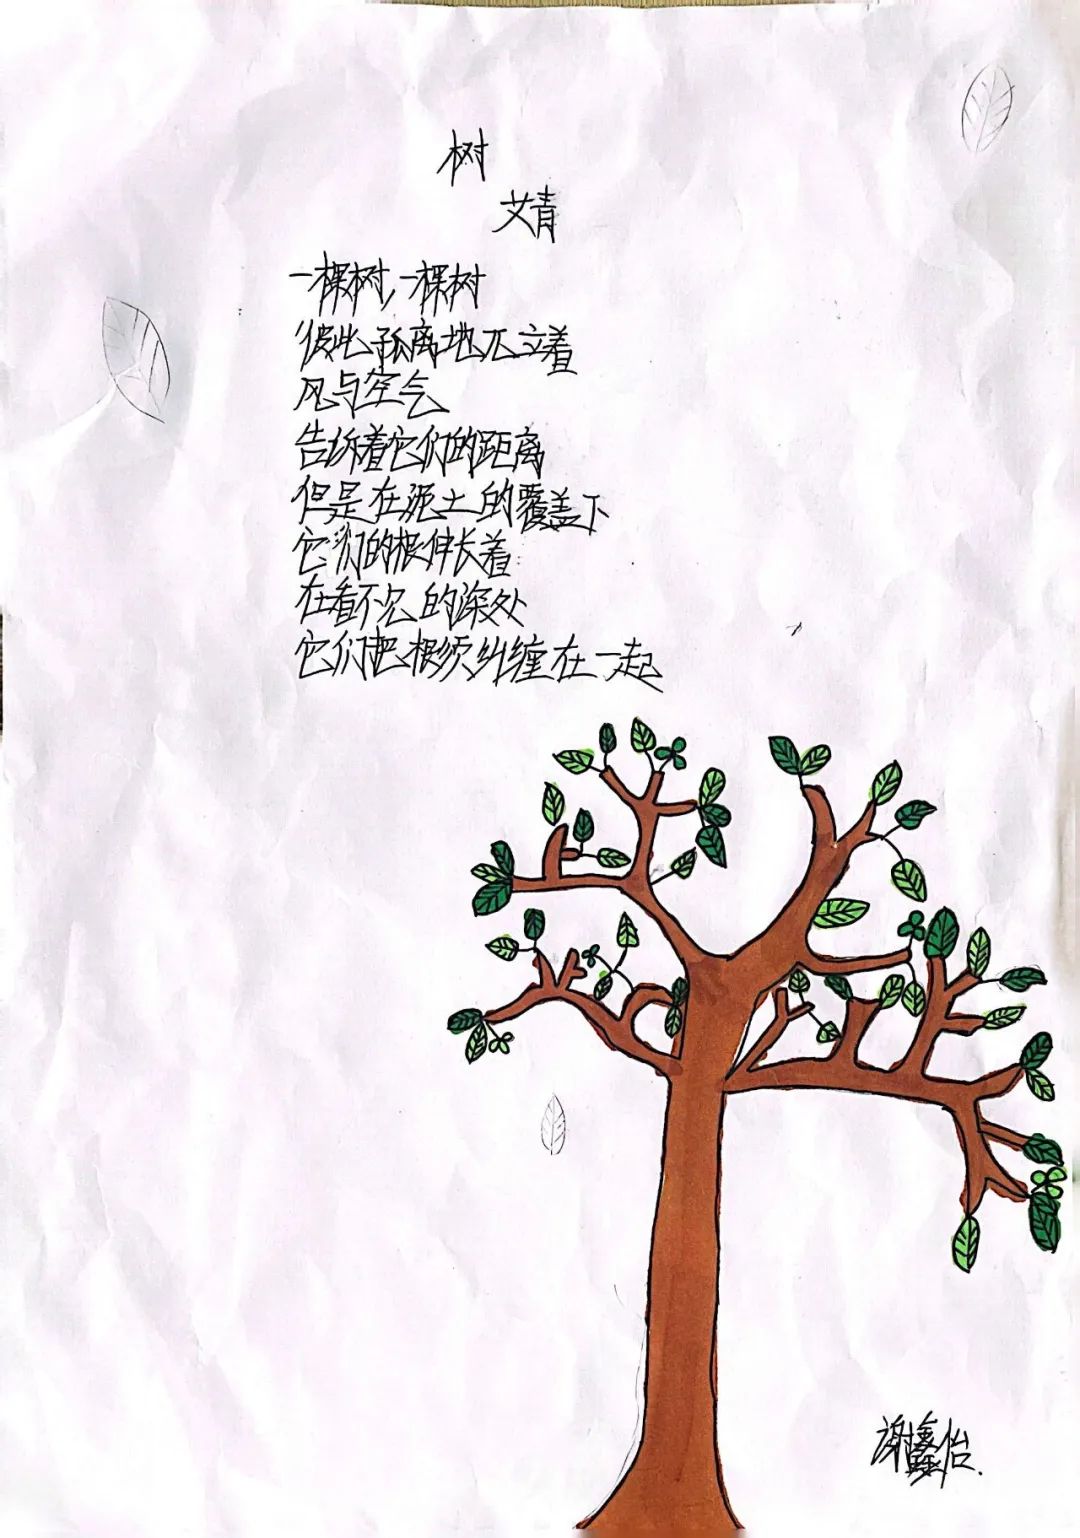 树
艾青
一棵树,一棵树
彼此孤离地兀立着
风与空气
告诉着它们的距离
但是在泥土的覆盖下
它们的根伸长着
在看不见的深处
它们把根须纠缠在一起
谢鑫怡.